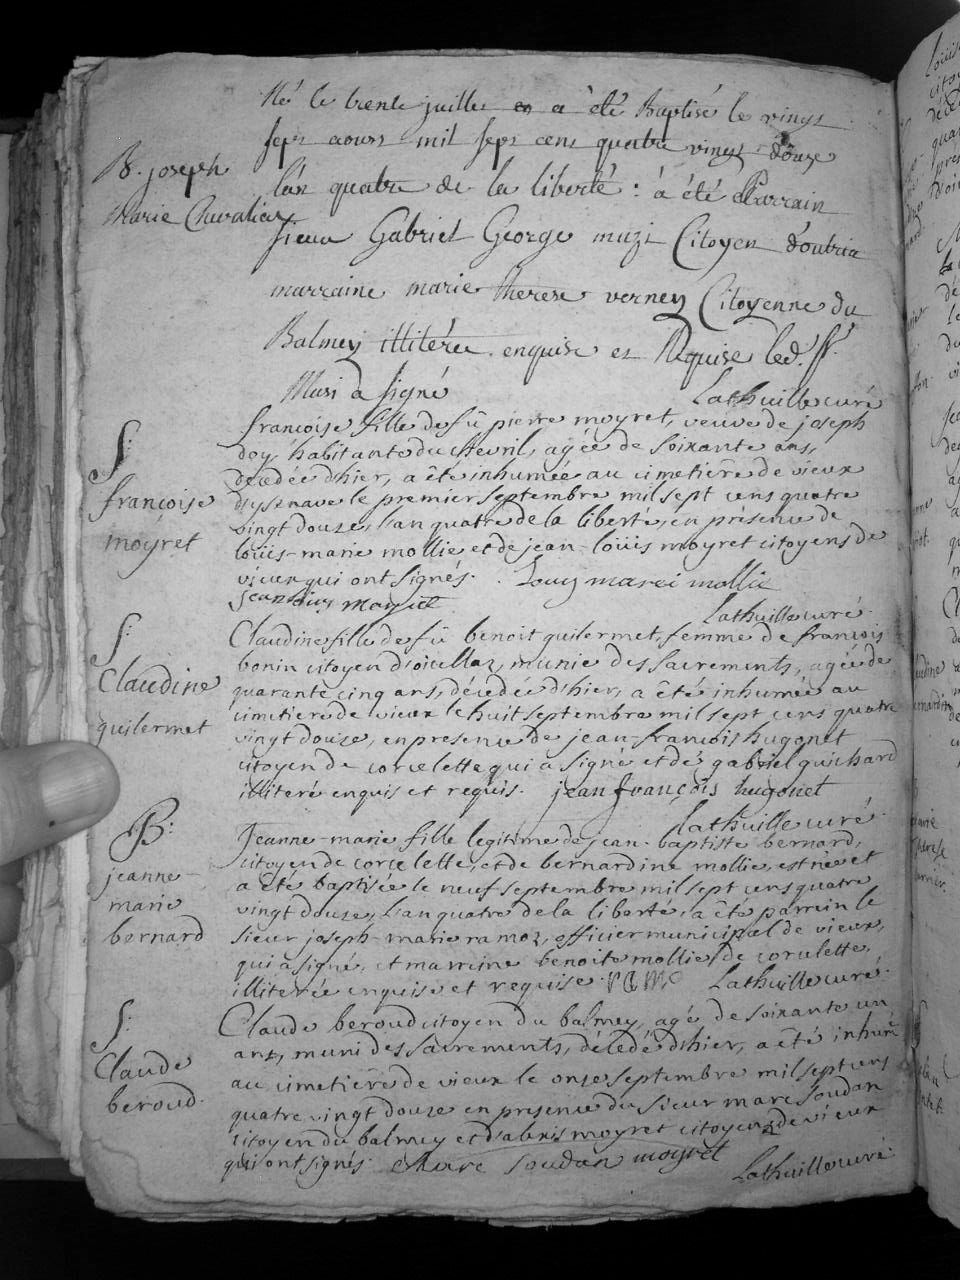 Né le trente juillet en a été Baptisé le vingt
sept aoust mil sept cens quatre vingt douze
B. joseph
Marie Chevalier
l'an quatre de la liberté : à été Parrain
sieur Gabriel George muzi Citoyen d'outria
marraine marie therese verney Citoyenne du
Balmey illitérée enquise et Requise led. Sr.
Muzi a signé
Lathuille curé
S:
françoise
moyret
françoise fille de fû pierre moyret, veuve de joseph
doy, habitante du Chevril, agée de soixante ans,
décédée d'hier, a été inhumée au cimetiere de vieux
d'ysenave le premier septembre mil sept cens quatre
vingt douze, l'an quatre de la liberté, en présence de
loüis-marie mollie et de jean-loüis moyret citoyens de
vieux qui ont signés. Louy marei mollie
jean luis moyret
Lathuille curé.
S:
Claudine
guilermet
Claudine fille de fû benoit guilermet, femme de francois
bonin citoyen d'oisellaz, munie des sacrements, agée de
quarante cinq ans, décédée d'hier, a été inhumée au
cimetiere de vieux le huit septembre mil sept cens quatre
vingt douze, en presence de jean-francois hugonet
citoyen de corcelette qui a signé et de gabriel guichard
illiteré enquis et requis. jean françois hugonet
Lathuille curé.
B:
jeanne-
marie
bernard
Jeanne-marie fille legitime de jean-baptiste bernard,
citoyen de corcelette, et de bernardine mollie, est née et
a été baptisée le neuf septembre mil sept cens quatre
vingt douze, l'an quatre de la liberté, a été parrein le
sieur joseph-marie ramoz, officier municipal de vieux,
qui a signé, et marreine benoite mollie de corcelette,
illiterée enquise et requise. ramo Lathuille curé.
S:
Claude
beroud.
Claude beroud citoyen du balmey, agé de soixante un
ans, muni des sacrements, décédé d'hier, a été inhumé
au cimetiere de vieux le onze septembre mil sept cens
quatre vingt douze en presence du sieur marc soudan
citoyen du balmey et d'alexis moyret citoyens de vieux
qui ont signés. Marc soudan moyret
Lathuille curé.